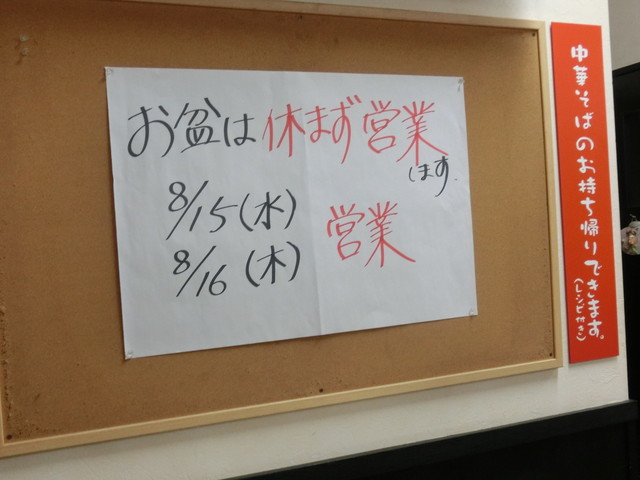 お盆は休まず営業
します
8/15(水)
8/16(木)
営業
中華そばのお持ち帰りできます。
(レシピ付き)